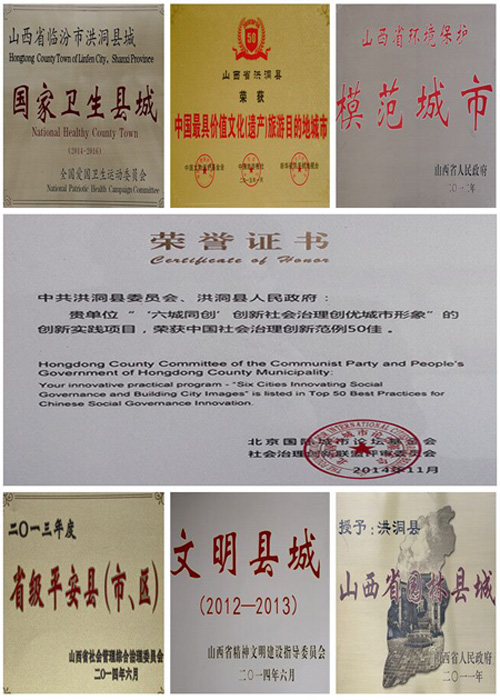 山西省临汾市洪洞县城
Hongtong County Town of Linfen City, Shanxi Province
国家卫生县城
National Healthy County Town
(2014-2016)
全国爱国卫生运动委员会
National Patriotic Health Campaign Committee
50
山西省洪洞县
荣获
中国最具价值文化(遗产)旅游目的地城市
二〇一三年一月
山西省环境保护
模范城市
山西省人民政府
荣誉证书
Certificate of Honor
中共洪洞县委员会、洪洞县人民政府：
贵单位“‘六城同创’创新社会治理创优城市形象”的
创新实践项目，荣获中国社会治理创新范例50佳。
Hongdong County Committee of the Communist Party and People's
Government of Hongdong County Municipality:
Your innovative practical program - "Six Cities Innovating Social
Governance and Building City Images" is listed in Top 50 Best Practices for
Chinese Social Governance Innovation.
北京国际城市论坛基金会
社会治理创新联盟评审委员会
2014年11月
二〇一三年度
省级平安县(市、区)
山西省社会管理综合治理委员会
二〇一四年六月
文明县城
(2012-2013)
山西省精神文明建设指导委员会
二〇一四年六月
授予：洪洞县
山西省园林县城
山西省人民政府
二〇一一年